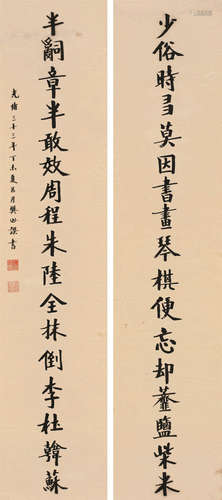 少俗時弖莫因書畫琴棋便忘却虀鹽柴米
半嗣章半敢效周程朱陸全抹倒李杜韓蘇
光緒三十三年丁未夏五月樊山樊書